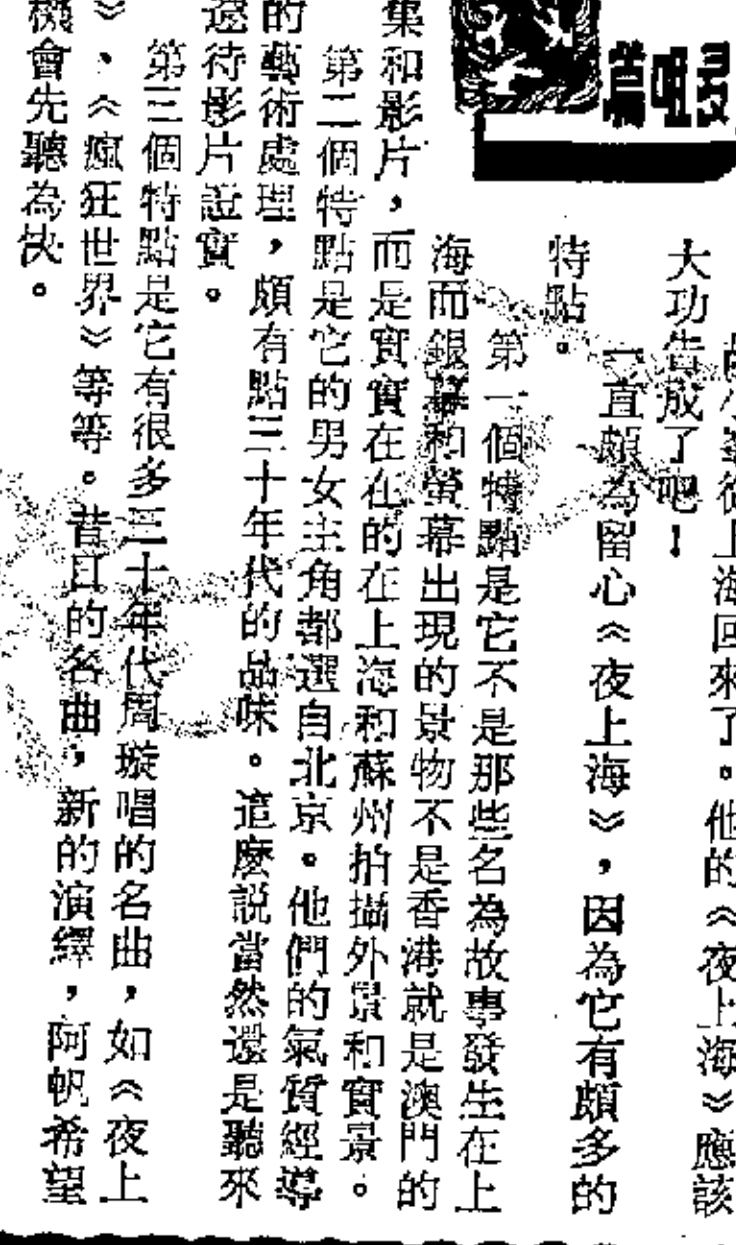 從上海回來了。他的《夜上海》應該
大功告成了吧!
一直頗為留心《夜上海》,因為它有頗多的
特點。
第一個特點是它不是那些名為故事發生在上
海而銀幕和螢幕出現的景物不是香港就是澳門的
集和影片,而是實實在在的在上海和蘇州拍攝外景和實景。
第二個特點是它的男女主角都選自北京。他們的氣質經導
的藝術處理,頗有點三十年代的品味。這麼説當然還是聽來
待影片證實。
第三個特點是它有很多三十年代周璇唱的名曲,如《夜上
》,《瘋狂世界》等等。昔日的名曲,新的演繹,阿帆希望
機會先聽為快。